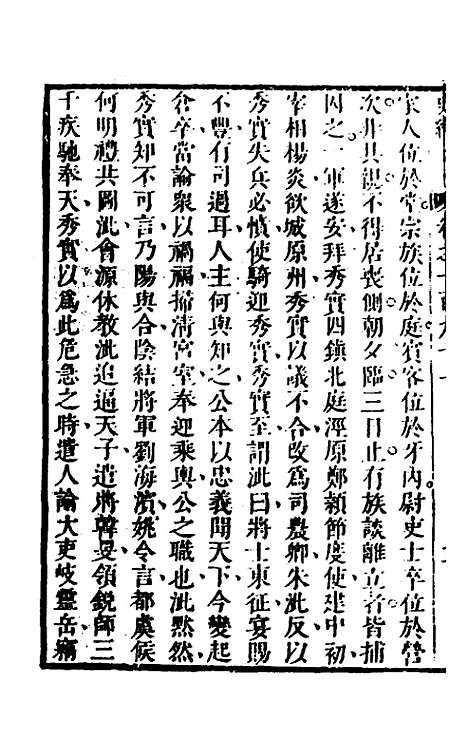 家人位於堂宗族位於庭賓客位於牙內尉吏士卒位於營
次非其親不得居喪側朝夕臨三日止有族談離立者皆捕
囚之一軍遂安拜秀實四鎮北庭涇原鄭潁節度使建中初
宰相楊炎欲城原州秀實以議不合改爲司農卿朱泚反以
秀實失兵必憤使騎迎秀實秀實至謂泚曰將士東征宴賜
不豐有司過耳人主何與知之公本以忠義聞天下今變起
倉卒當諭衆以禍福掃清宮室奉迎乘輿公之職也泚黙然
秀實知不可言乃陽與合陰結將軍劉海濱姚令言都虞候
何明禮共圖泚會源休教泚追逼天子遣將韓旻領銳師三
千疾馳奉天秀實以爲此危急之時遣人諭大吏岐靈岳竊